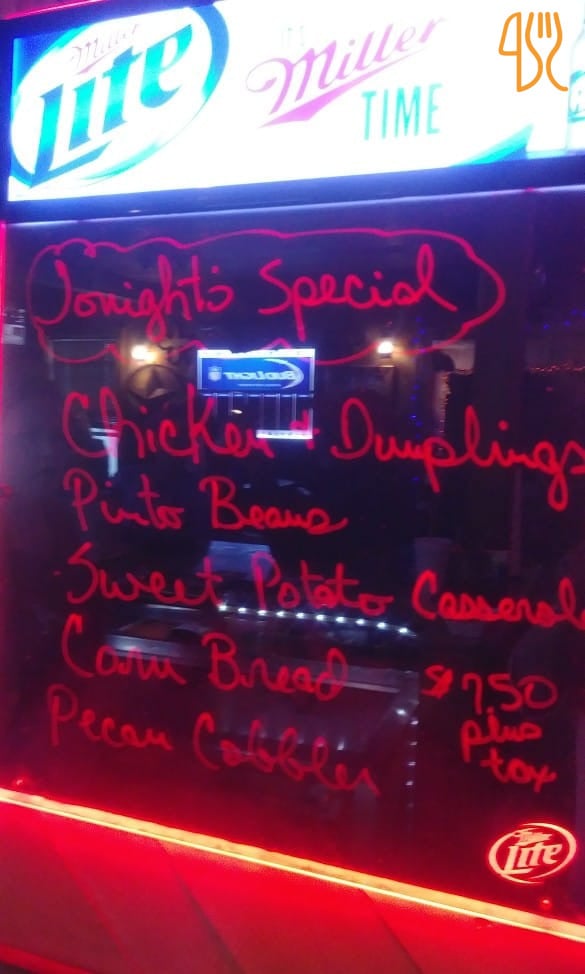 Miller
Lite
IT'S
Miller
TIME
Tonight's Special
BUD LIGHT
Chicken & Dumplings
Pinto Beans
Sweet Potato Casserol
Corn Bread $7.50
plus
tax
Pecan Cobbler
Miller
Lite